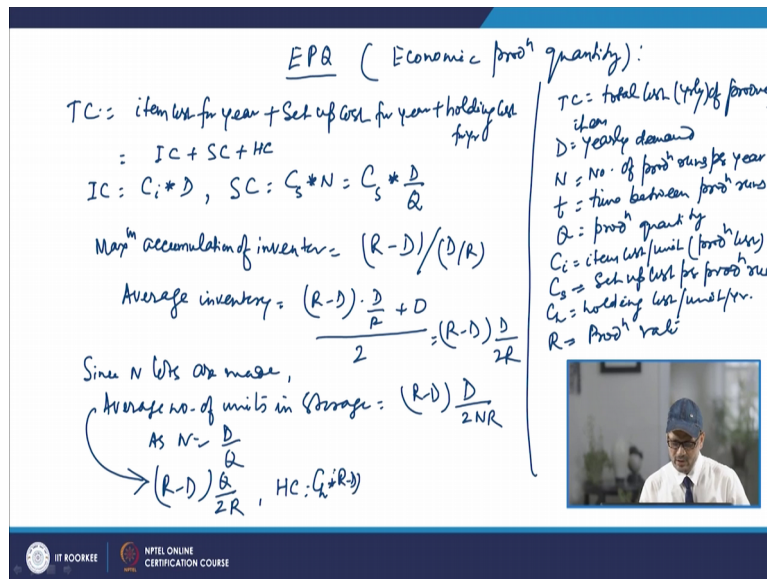 EPQ ( Economic prodⁿ quantity) :
TC = item cost for year + Set up Cost for year + holding Cost
for yr
= IC + SC + HC
IC = Ci * D , SC = Cs * N = Cs * D/Q
Maxᵐ accumulation of inventor = (R-D)/(D/R)
Average inventory = ((R-D) · D/R + 0)/2 = (R-D) D/2R
Since N lots are made,
Average no. of units in storage = (R-D) D/2NR
As N = D/Q
(R-D) Q/2R , HC = Ch * (R-D)
TC = total cost (yrly) of
item
D = yearly demand
N = No. of prodⁿ runs per year
t = time between prodⁿ runs
Q = prodⁿ quantity
Ci = item cost/unit (prodⁿ cost)
Cs = Set up Cost per prodⁿ run
Ch = holding cost/unit/yr.
R = Prodⁿ rate
IIT ROORKEE
NPTEL ONLINE
CERTIFICATION COURSE